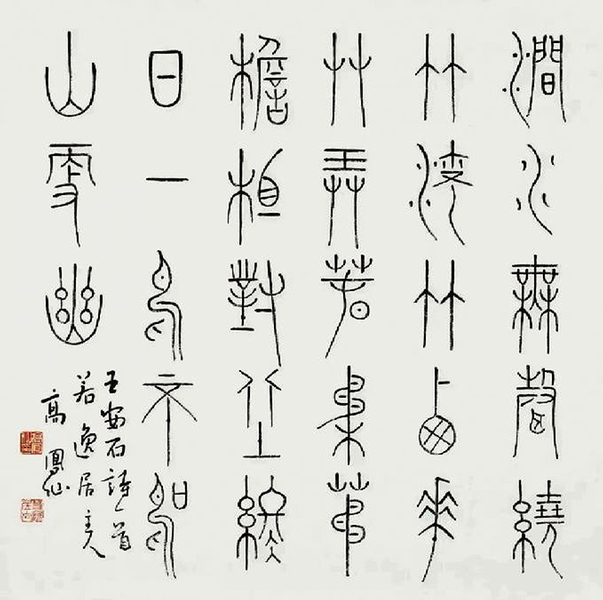 澗水無聲繞
竹流竹西華
艸弄春柔茅
檐相對坐終
日一鳥不鳴
山更幽
王安石詩一首
若逸居主人
高鳳仙